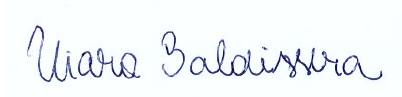 Chiara Baldissera